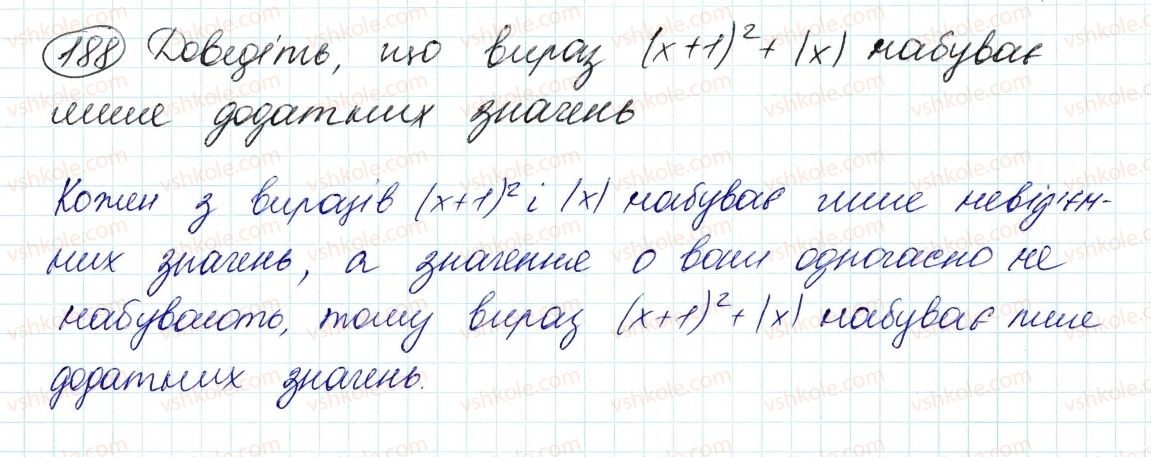 188 Доведіть, що вираз (x+1)² + |x| набуває
лише додатних значень
Кожен з виразів (x+1)² і |x| набуває лише невід'єм-
них значень, а значення 0 вони одночасно не
набувають, тому вираз (x+1)² + |x| набуває лише
додатних значень.